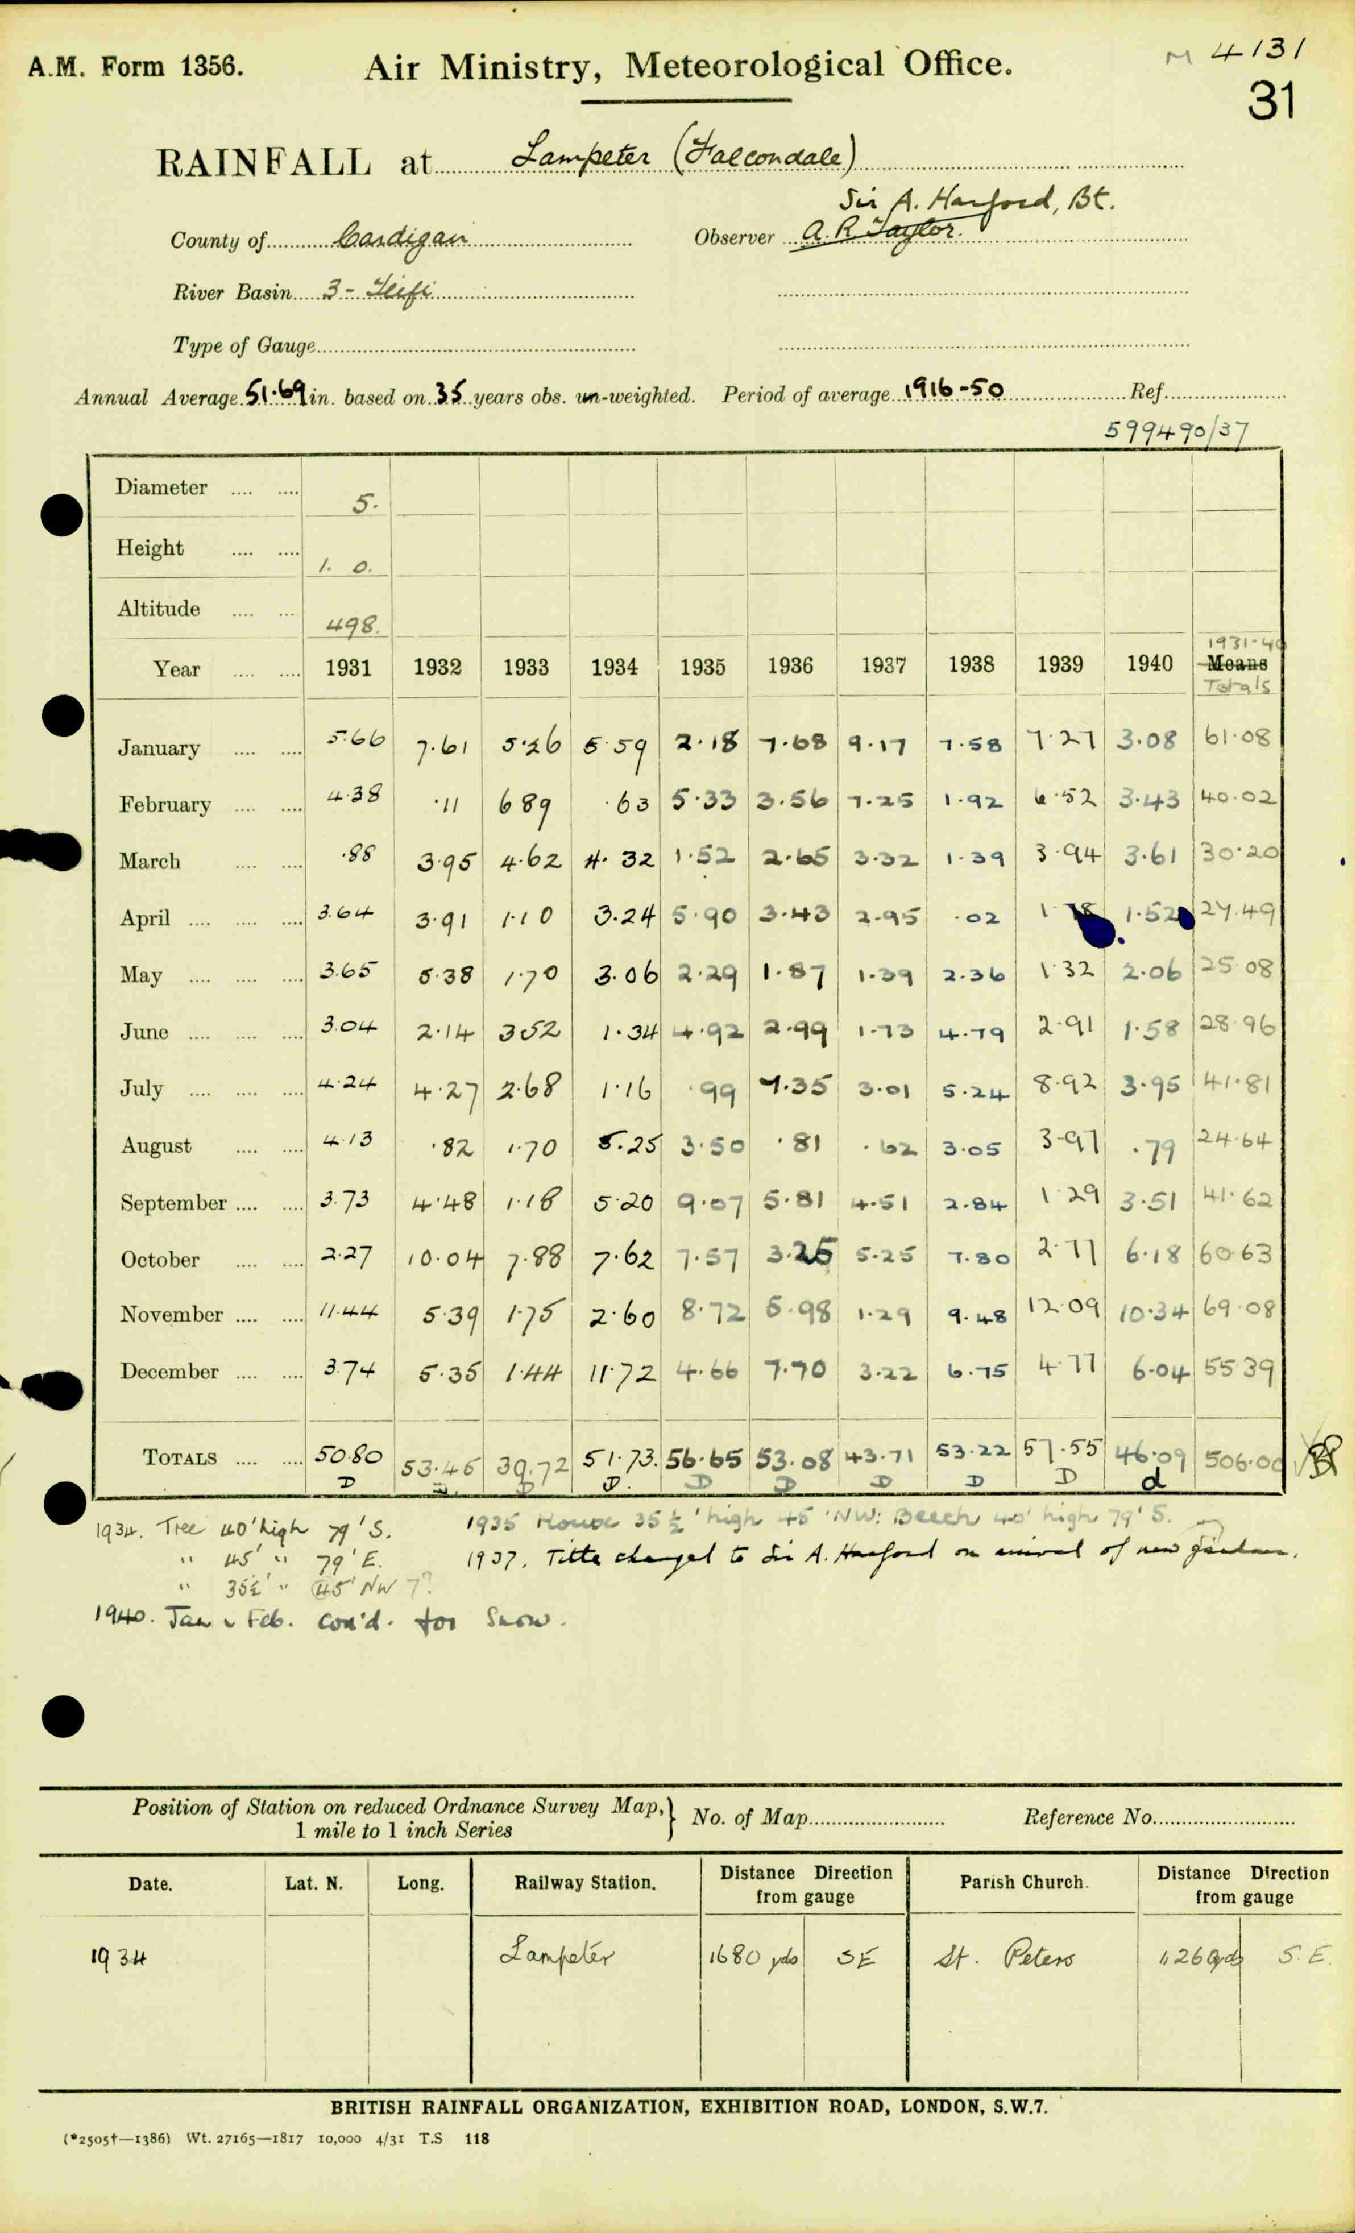 A.M. Form 1356. Air Ministry, Meteorological Office. M 4131
31
RAINFALL at Lampeter (Falcondale)
Sir A. Harford, Bt.
County of Cardigan Observer A. R. Taylor.
River Basin 3 - Teifi
Type of Gauge
Annual Average 51.69 in. based on 35 years obs. un-weighted. Period of average 1916-50 Ref.
599490/37
Diameter 5.
Height 1. 0.
Altitude 498.
1931-40
Year 1931 1932 1933 1934 1935 1936 1937 1938 1939 1940 Means
Totals
January 5.66 7.61 5.26 5.59 2.18 7.68 9.17 7.58 7.27 3.08 61.08
February 4.38 .11 6 89 .63 5.33 3.56 7.25 1.92 6.52 3.43 40.02
March .88 3.95 4.62 4.32 1.52 2.65 3.32 1.39 3.94 3.61 30.20
April 3.64 3.91 1.10 3.24 5.90 3.43 2.95 .02 1.52 27.49
May 3.65 5.38 1.70 3.06 2.29 1.87 1.39 2.36 1.32 2.06 25.08
June 3.04 2.14 3.52 1.34 4.92 2.99 1.73 4.79 2.91 1.58 28.96
July 4.24 4.27 2.68 1.16 .99 7.35 3.01 5.24 8.92 3.95 41.81
August 4.13 .82 1.70 5.25 3.50 .81 .62 3.05 3.97 .79 24.64
September 3.73 4.48 1.18 5.20 9.07 5.81 4.51 2.84 1.29 3.51 41.62
October 2.27 10.04 7.88 7.62 7.57 3.25 5.25 7.80 2.77 6.18 60.63
November 11.44 5.39 1.75 2.60 8.72 5.98 1.29 9.48 12.09 10.34 69.08
December 3.74 5.35 1.44 11.72 4.66 7.70 3.22 6.75 4.77 6.04 55.39
TOTALS 50.80 53.45 39.72 51.73. 56.65 53.08 43.71 53.22 57.55 46.09 506.00
D D D D. D D D D D d
1934. Tree 40' high 79' S. 1935 House 35½' high 45' NW: Beech 40' high 79' S.
" 45' " 79' E. 1937. Title changed to Sir A. Harford on arrival of new
" 35½' " 45' NW ?
1940. Jan & Feb. con'd. for Snow.
Position of Station on reduced Ordnance Survey Map, 1 mile to 1 inch Series } No. of Map Reference No.
Date. Lat. N. Long. Railway Station. Distance Direction from gauge Parish Church. Distance Direction from gauge
1934 Lampeter 1680 yds SE St. Peters 1,260 yds S.E.
BRITISH RAINFALL ORGANIZATION, EXHIBITION ROAD, LONDON, S.W.7.
(*2505†—1386) Wt. 27165—1817 10,000 4/31 T.S 118